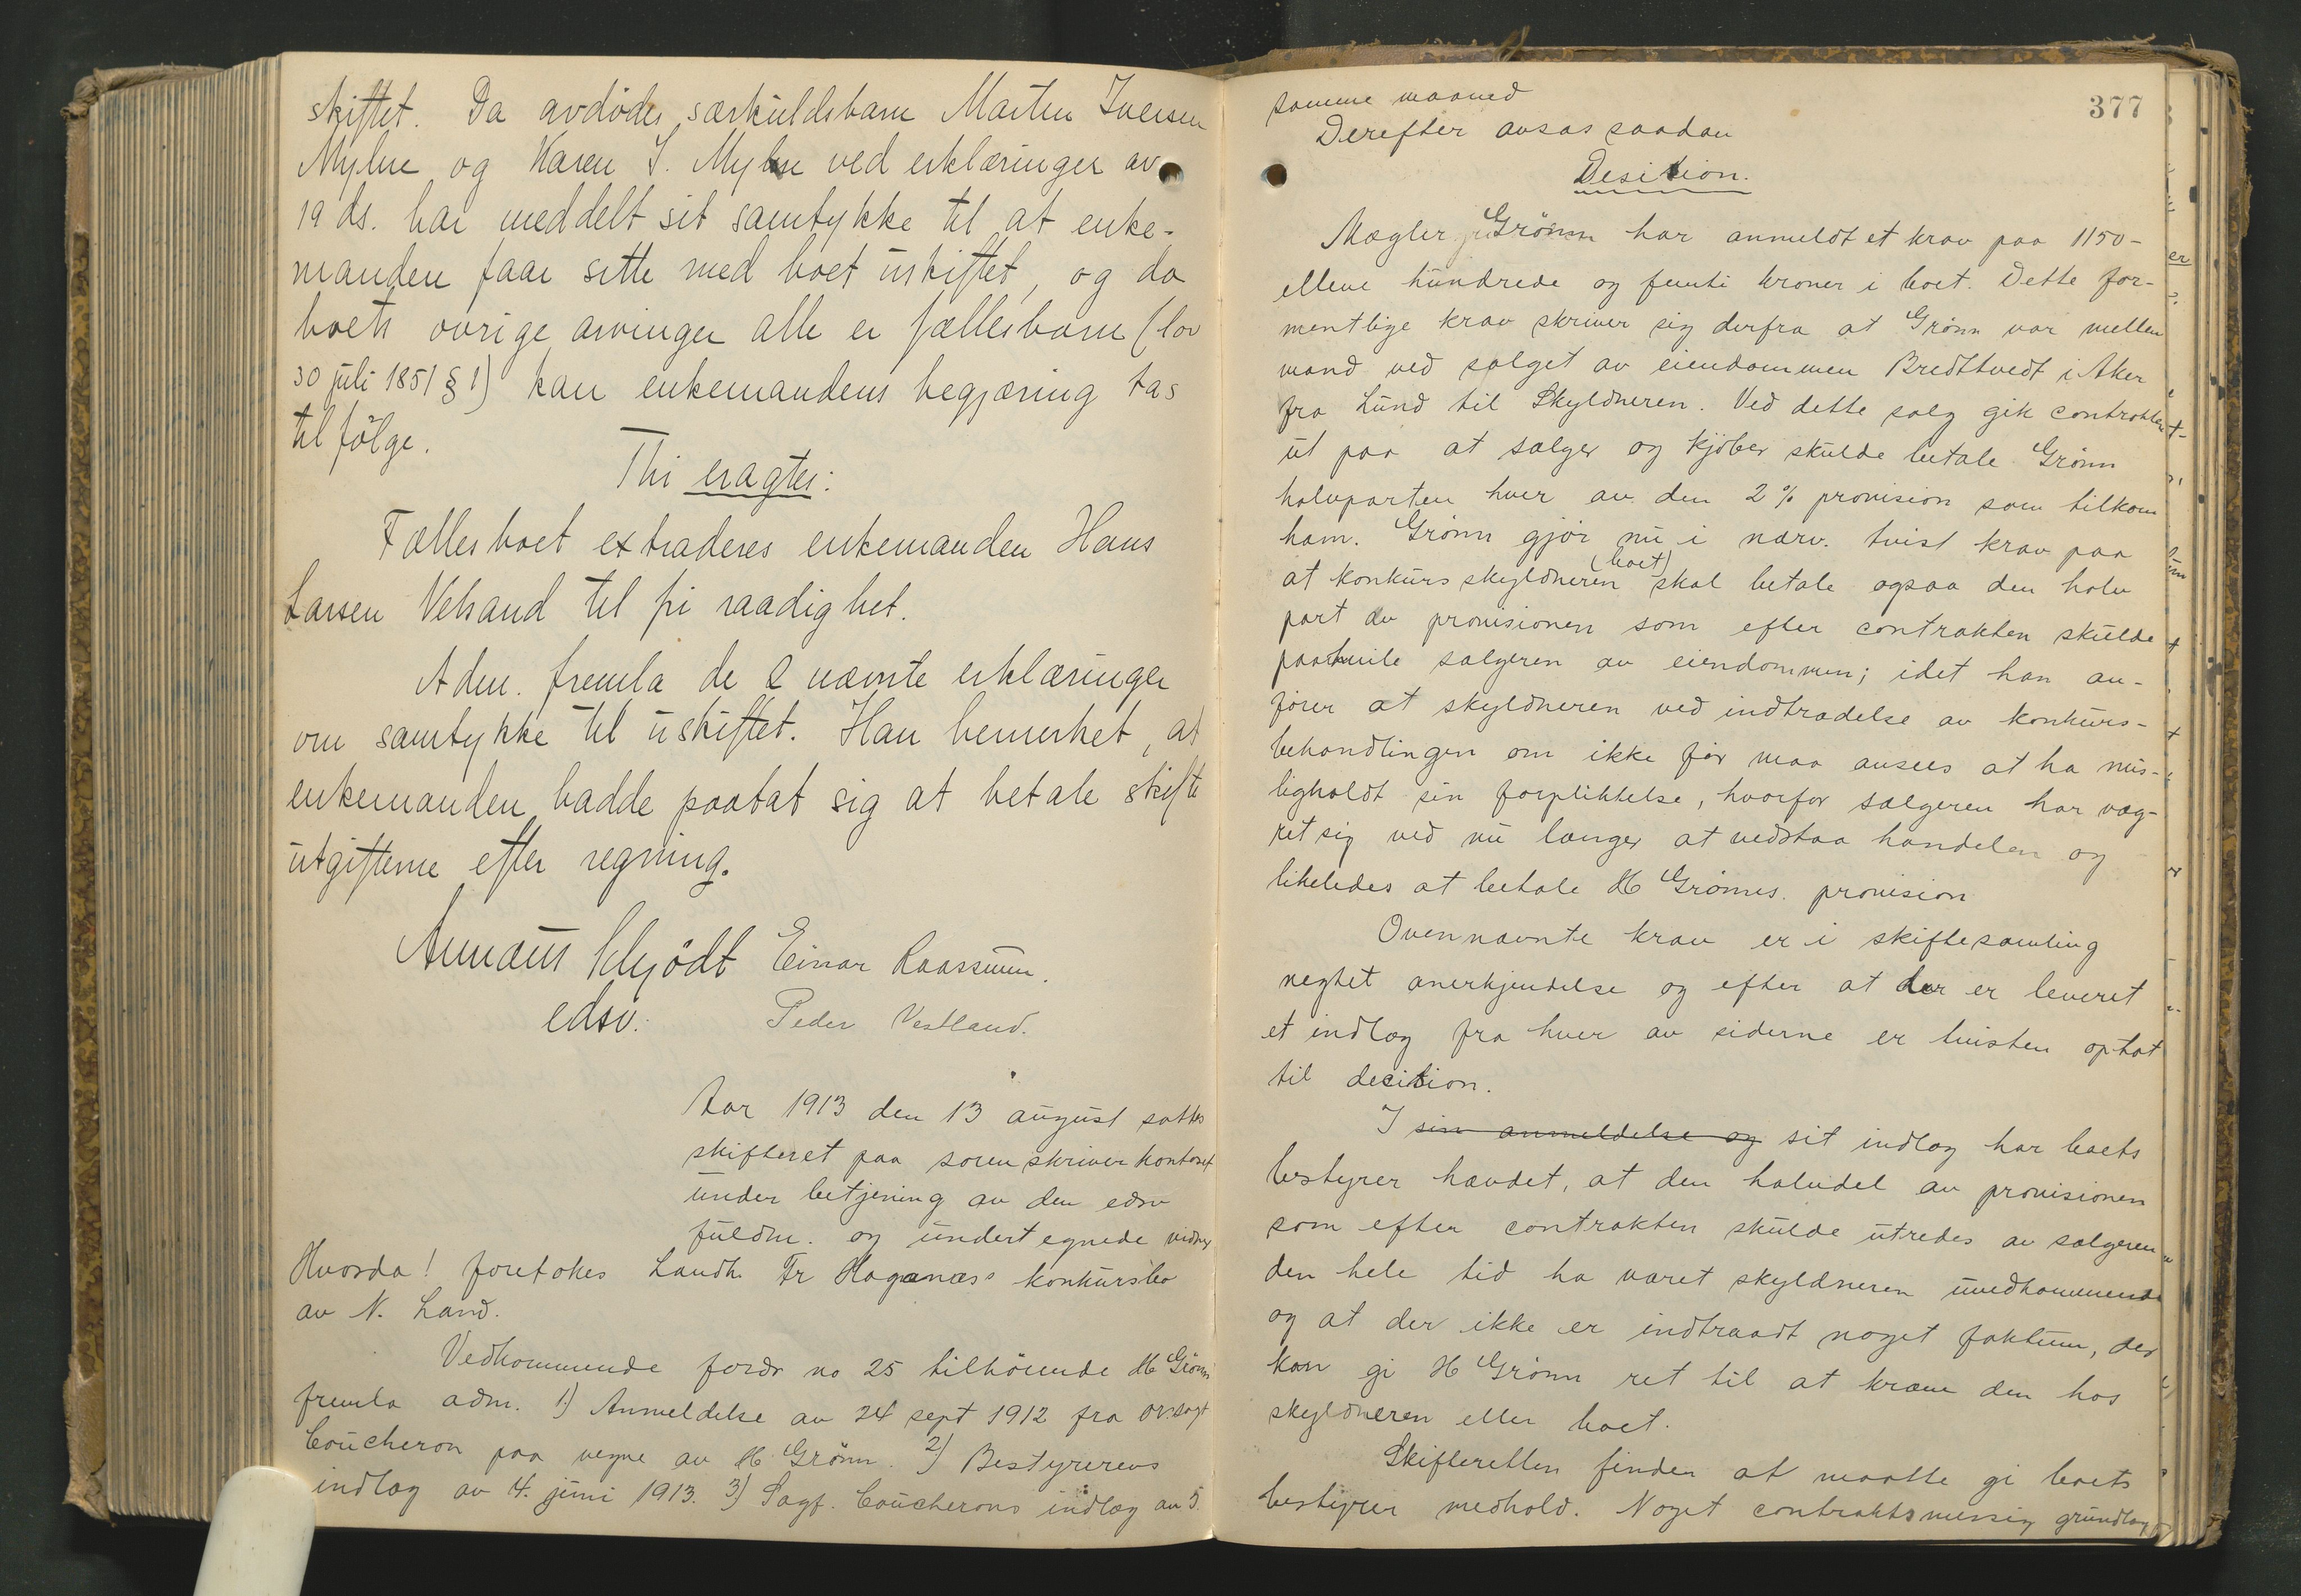 skiftet. Da avdödes særkuldsbarn Marten Iversen
Mylne og Karen I. Mylne ved erklæringer av
19 ds. har meddelt sit samtykke til at enke-
manden faar sitte med boet uskiftet, og da
boets övrige arvinger alle er fællesbarn (lov
30 juli 1851 § 1) kan enkemandens begjæring tas
til fölge.
Thi eragtes:
Fællesboet extraderes enkemanden Hans
Larsen Velsand til fri raadighet.
Adm. fremla de 2 nævnte erklæringer
om samtykke til uskiftet. Han bemerket, at
enkemanden hadde paatat sig at betale skifte
utgifterne efter regning.
Annæus Schjödt Einar Raassum.
edsv. Peder Vestland.
Aar 1913 den 13 august sattes
skifteret paa sorenskriverkontoret
under betjening av den edsv
fuldm. og undertegnede vidner
Hvorda! foretokes Landh. Fr Haganæs's konkursbo
av N. Land.
Vedkommende fordr no 25 tilhörende H Grönn
fremla adm. 1) Anmeldelse av 24 sept 1912 fra ov.sagf
Coucheron paa vegne av H Grönn. 2) Bestyrerens
indlæg av 4. juni 1913. 3) Sagf. Coucherons indlæg av 5.
377
samme maaned
Derefter avsas saadan
Desition.
Mægler Grönn har anmeldt et krav paa 1150-
elleve hundrede og femti kroner i boet. Dette for-
mentlige krav skriver sig derfra at Grönn var mellem
mand ved salget av eiendommen Bredtvedt i Aker
fra Lund til Skyldneren. Ved dette salg gik contrakten
ut paa at sælger og kjöber skulde betale Grönn
halvparten hver av den 2 % provision som tilkom
ham. Grönn gjör nu i nærv. tvist krav paa
at konkursskyldneren (boet) skal betale ogsaa den halv
part av provisionen som efter contrakten skulde
paahvile sælgeren av eiendommen; idet han an-
förer at skyldneren ved indtrædelse av konkurs-
behandlingen om ikke för maa ansees at ha mis-
ligholdt sin forpliktelse, hvorfor sælgeren har væg-
ret sig ved nu længer at vedstaa handelen og
likeledes at betale H Grönns. provision
Ovennævnte krav er i skiftesamling
negtet anerkjendelse og efter at der er leveret
et indlæg fra hver av siderne er tvisten optat
til decition.
I sin anmeldelse og sit indlæg har boets
bestyrer hævdet, at den halvdel av provisionen
som efter contrakten skulde utredes av sælgeren
den hele tid ha været skyldneren uvedkommende
og at der ikke er indtraadt noget faktum, der
kan gi H Grönn ret til at kræve den hos
skyldneren eller boet.
Skifteretten finder at maatte gi boets
bestyrer medhold. Noget contraktsmæssig grundlag